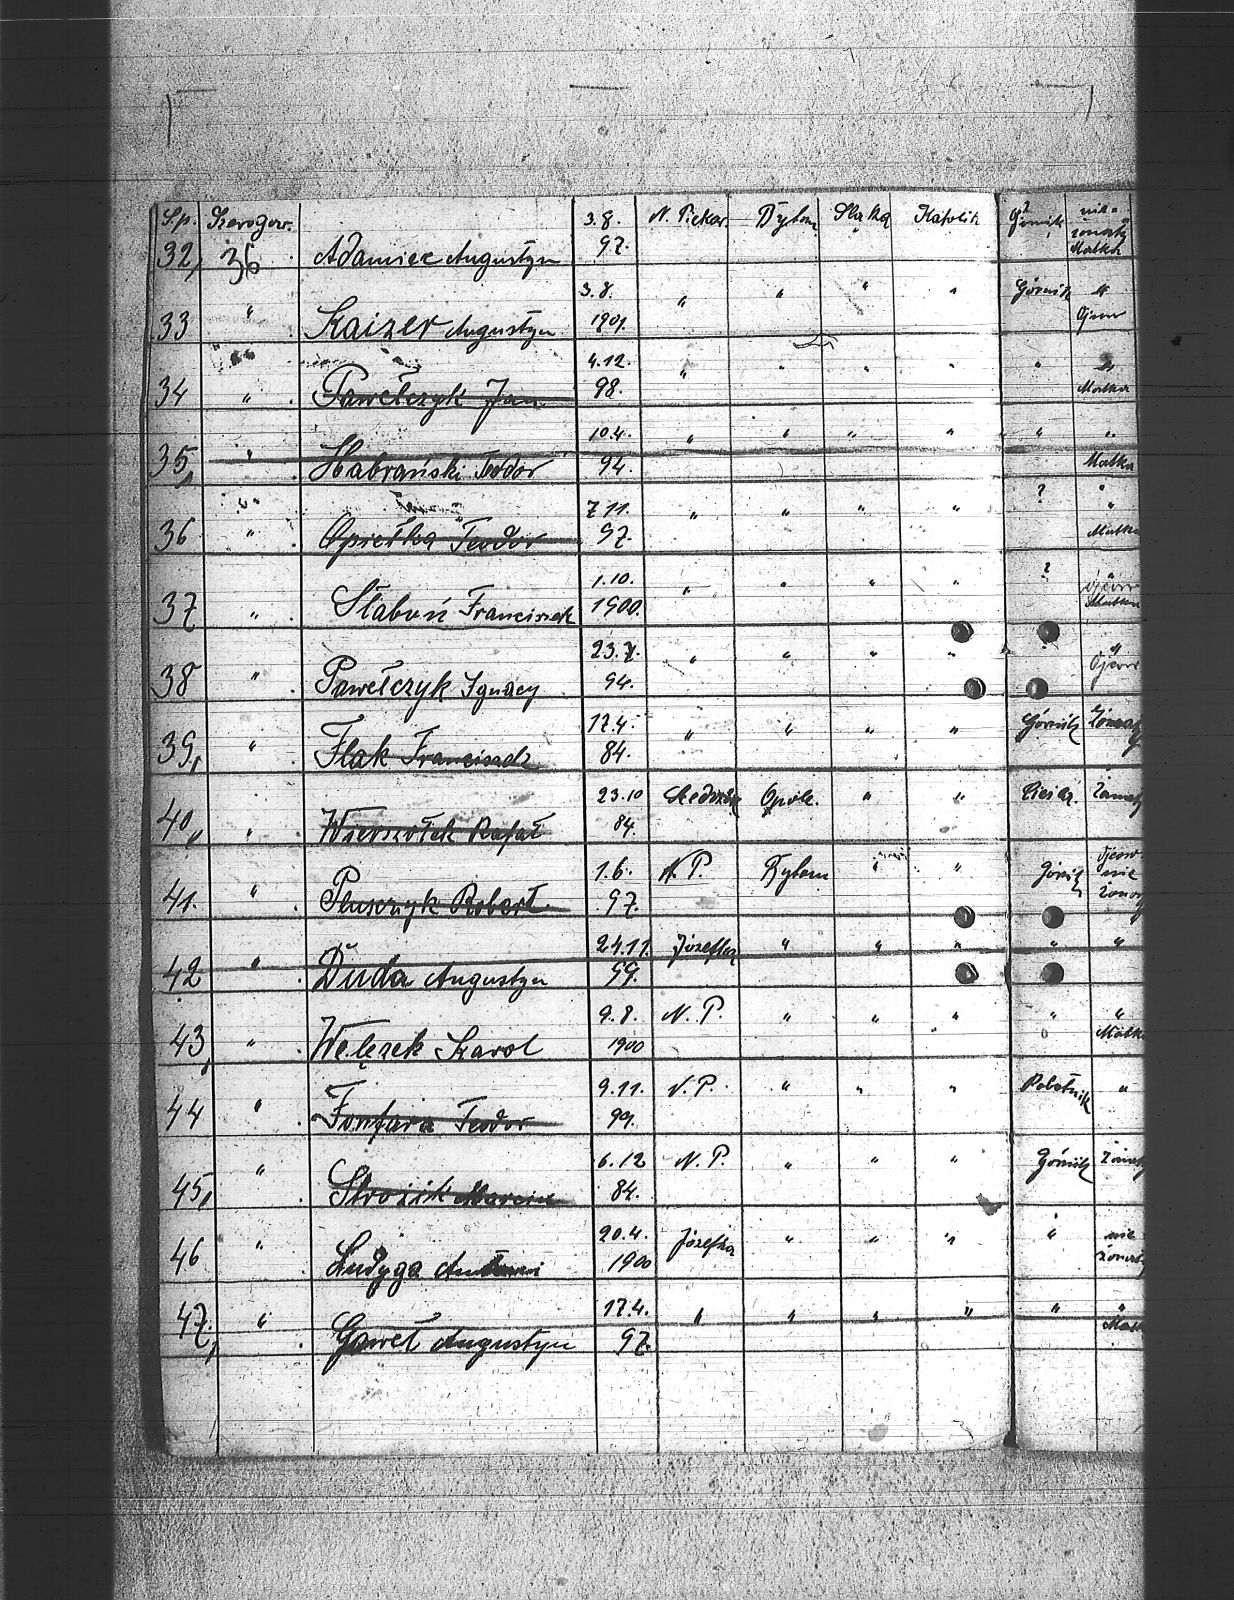 S.p. Szeregow. 3.8. N. Piekar. Bytom Śląska Katolik Górnik nie-
żonaty
32, 36 Adamiec Augustyn 97. Matka
" 3.8. " " " " Górnik "
33 Kaizer Augustyn 1901. Ojciec
" 4.12. " " " " " "
34 " Pawełczyk Jan 98. Matka
10.4. " " " " " "
35, " Habrański Teodor 94. Matka
" 7 11. " " " " ? "
36 " Opiełka Teodor 97. Matka
1.10. " " " " ? "
37 " Słaboń Franciszek 1900.
23.7. " " " " "
38 " Pawełczyk Ignacy 94.
17.4. " " " " Górnik Żonaty
39, " Flak Franciszek 84.
23.10 Opole. " " Żonaty
40, " Wierszołek Rafał 84.
1.6. N. P. Bytom " " Górnik nie
żonaty
41. " Pluszczyk Robert 97.
24.11. Józefka " " " " "
42 " Duda Augustyn 99.
9.8. N. P. " " " " "
43, " Welczek Karol 1900 Matka
9.11. N. P. " " " Robotnik "
44 " Fontara Teodor 99.
" 6.12 N. P. " " " Górnik Żonaty
45, Strożik Marcin 84.
" 20.4. Józefka " " " " nie
46 Ludyga Antoni 1900 żonaty
17.4. " " " " " "
47, " Gaweł Augustyn 97.